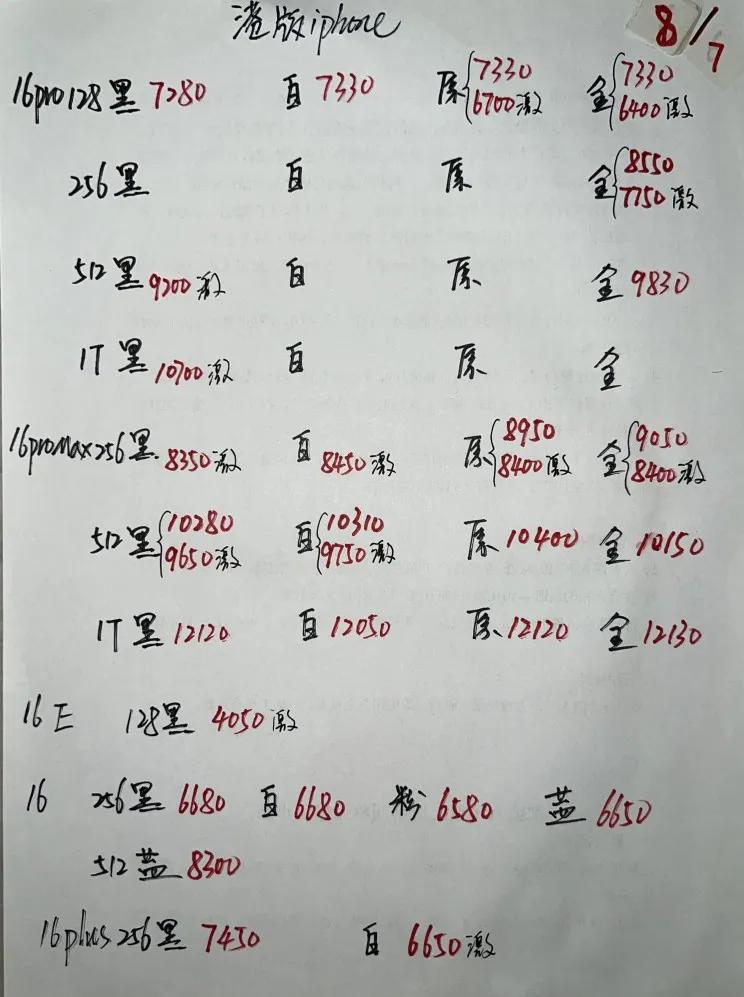 港版iphone 8/7
16pro128黑7280 白7330 原{7330 6700激 金{7330 6400激
256黑 白 原 金{8550 7750激
512黑9200激 白 原 金9830
1T黑10700激 白 原 金
16promax256黑.8350激 白8450激 原{8950 8400激 金{9050 8400激
512黑{10280 9650激 白{10310 9750激 原10400 金10150
1T黑12120 白12050 原12120 金12130
16E 128黑 4050激
16 256黑6680 白6680 粉6580 蓝6650
512蓝8300
16plus256黑7450 白6650激